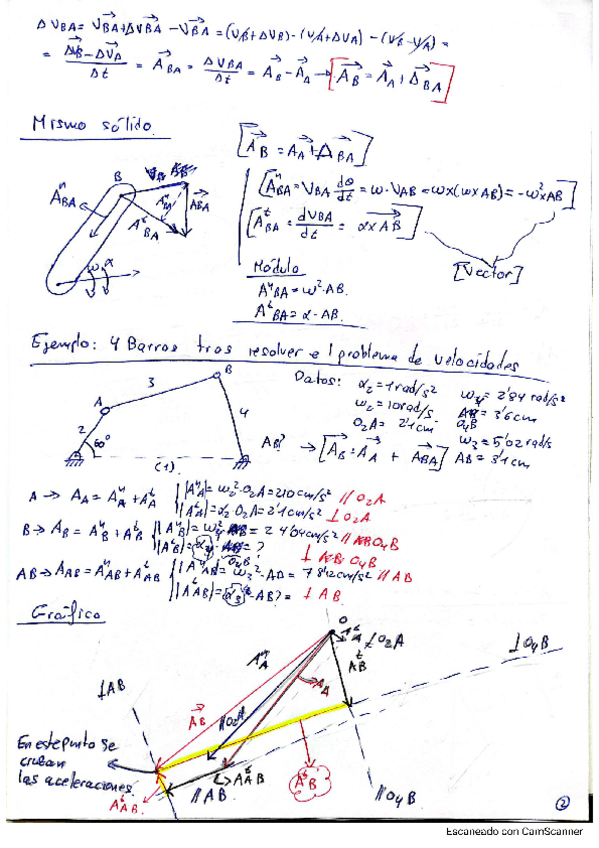 ΔVBA = VBA+ΔVBA - VBA = (VB+ΔVB) - (VA+ΔVA) - (VB - VA) =
= ΔVB - ΔVA / Δt = ABA = ΔVBA / Δt = AB - AA → [AB = AA + ABA]
Mismo sólido.
[AB = AA + ABA]
[AⁿBA = VBA dθ/dt = ω · VAB = ω x (ω x AB) = -ω² x AB]
[AᵗBA = dVBA/dt = α x AB]
[Vector]
Módulo
AⁿBA = ω² · AB.
AᵗBA = α · AB.
B
AⁿBA
AᵗBA
ABA
ω α
Ejemplo: 4 Barras tras resolver el problema de velocidades
Datos: α2 = 1 rad/s² ω4 = 2'84 rad/s²
ω2 = 10 rad/s O4B = 3'6 cm
O2A = 2'1 cm ω3 = 5'02 rad/s
AB? → [AB = AA + ABA] AB = 3'1 cm
A
B
2
3
4
60°
(1)
A → AA = AⁿA + AᵗA |AⁿA| = ω2² · O2A = 210 cm/s² // O2A
|AᵗA| = α2 · O2A = 2'1 cm/s² ⊥ O2A
B → AB = AⁿB + AᵗB // O4B
|AᵗB| = α4 · O4B = ? ⊥ O4B
AB → AAB = AⁿAB + AᵗAB |AⁿAB| = ω3² · AB = 78'12 cm/s² // AB
|AᵗAB| = α3 · AB? = ⊥ AB.
Gráfico
O
AᵗA ⊥ O2A
AⁿA
AA
⊥ O4B
⊥ AB
AB
// O2A
En este punto se
cruzan
las aceleraciones.
AᵗAB
// AB
AᵗB
// O4B
2
Escaneado con CamScanner